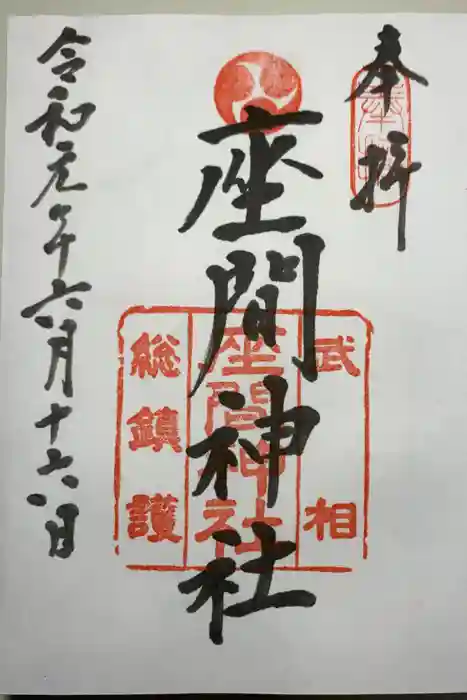 奉拝
武相
座間神社
座間神社
総鎮護
令和元年六月十六日